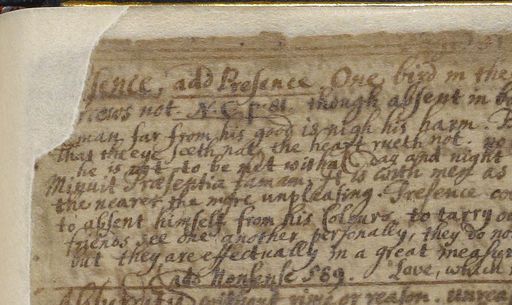 sence, add Presence One bird in the
news not. N.C.P. 81. though absent in bo
man far from his good is nigh his harm.
That the eye seeth not the heart rueth not. we
he is not to be met withal day and night
Minuit Præsentia famam. It is with men as
the nearer the more unpleasing. Presence co
to absent himself from his colours, to tarry ou
friends see one another personally, they do no
but they are effectually in a great measur
add Nonsense 589. Love, which
without rime or reason. unrea